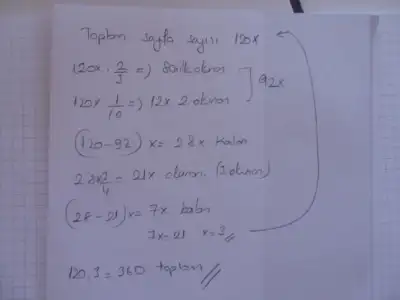 Toplam sayfa sayısı 120x
120x · 2/3 => 80x ilk okunan
92x
120x 1/10 => 12x 2. okunan
(120-92)x = 28x kalan
28x 3/4 = 21x okunan (3. okunan)
(28-21)x = 7x kalan
7x=21 x=3
120.3=360 toplam